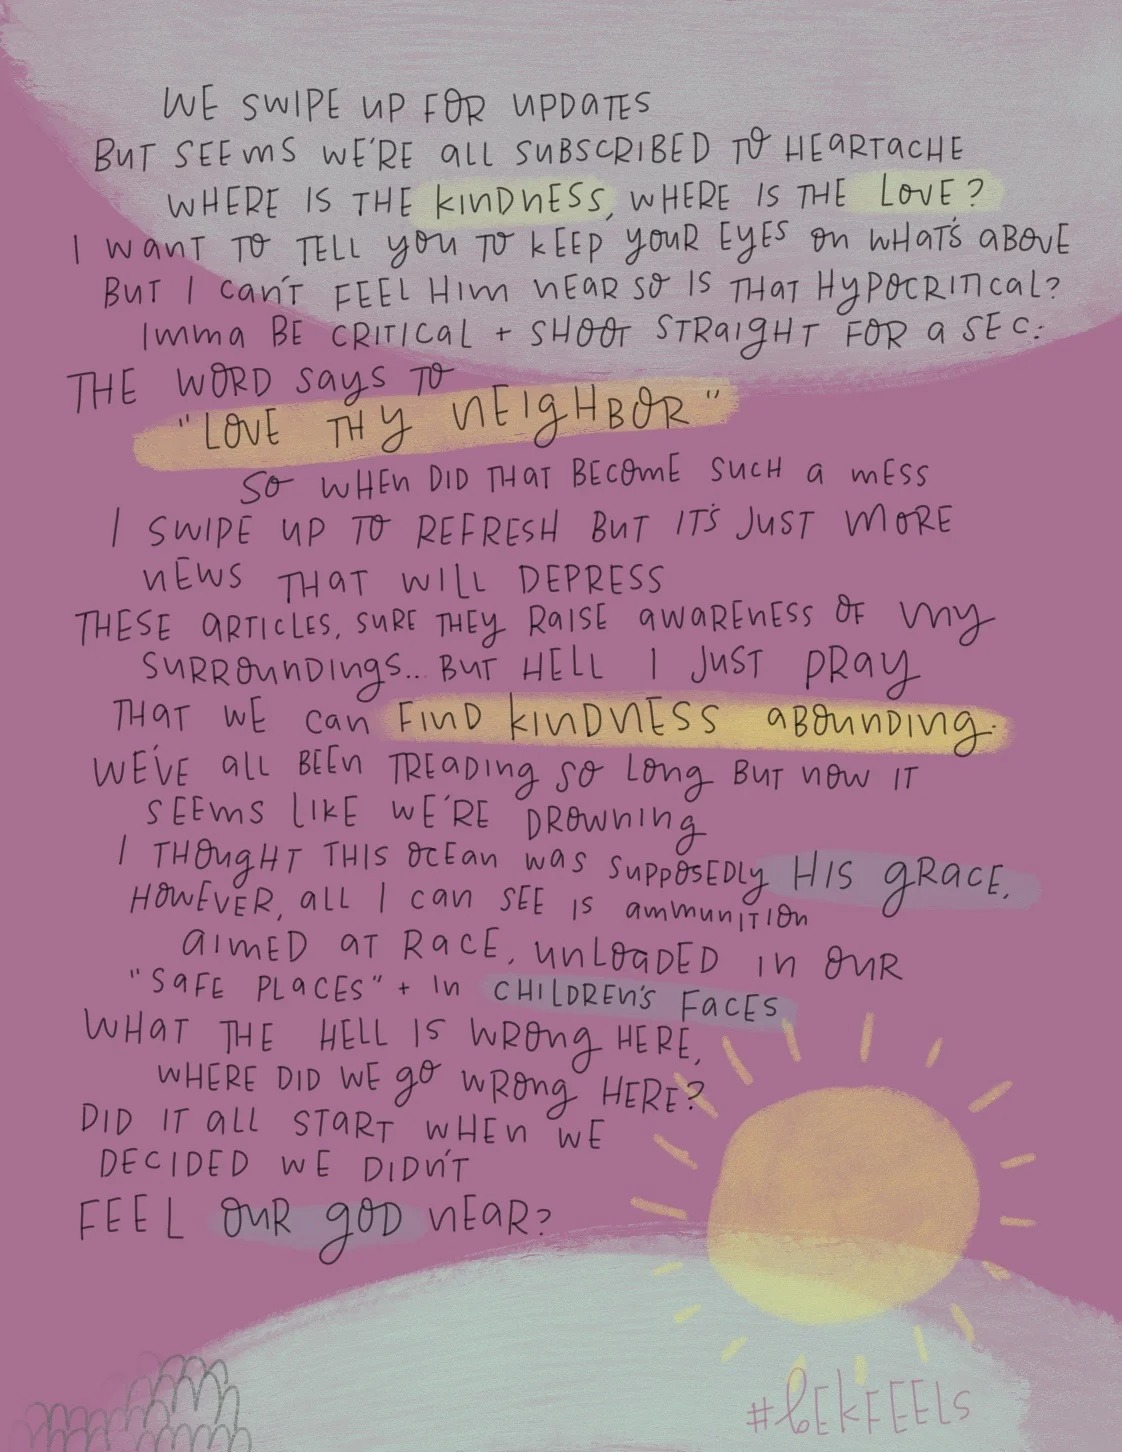 WE SWIPE UP FOR UPDATES
BUT SEEMS WE'RE ALL SUBSCRIBED TO HEARTACHE
WHERE IS THE KINDNESS, WHERE IS THE LOVE?
I WANT TO TELL YOU TO KEEP YOUR EYES ON WHAT'S ABOVE
BUT I CAN'T FEEL HIM NEAR SO IS THAT HYPOCRITICAL?
IMMA BE CRITICAL + SHOOT STRAIGHT FOR A SEC:
THE WORD SAYS TO
"LOVE THY NEIGHBOR"
SO WHEN DID THAT BECOME SUCH A MESS
I SWIPE UP TO REFRESH BUT IT'S JUST MORE
NEWS THAT WILL DEPRESS
THESE ARTICLES, SURE THEY RAISE AWARENESS OF MY
SURROUNDINGS... BUT HELL I JUST PRAY
THAT WE CAN FIND KINDNESS ABOUNDING.
WE'VE ALL BEEN TREADING SO LONG BUT NOW IT
SEEMS LIKE WE'RE DROWNING
I THOUGHT THIS OCEAN WAS SUPPOSEDLY HIS GRACE,
HOWEVER, ALL I CAN SEE IS AMMUNITION
AIMED AT RACE, UNLOADED IN OUR
"SAFE PLACES" + IN CHILDREN'S FACES
WHAT THE HELL IS WRONG HERE,
WHERE DID WE GO WRONG HERE?
DID IT ALL START WHEN WE
DECIDED WE DIDN'T
FEEL OUR GOD NEAR?
#BEKFEELS